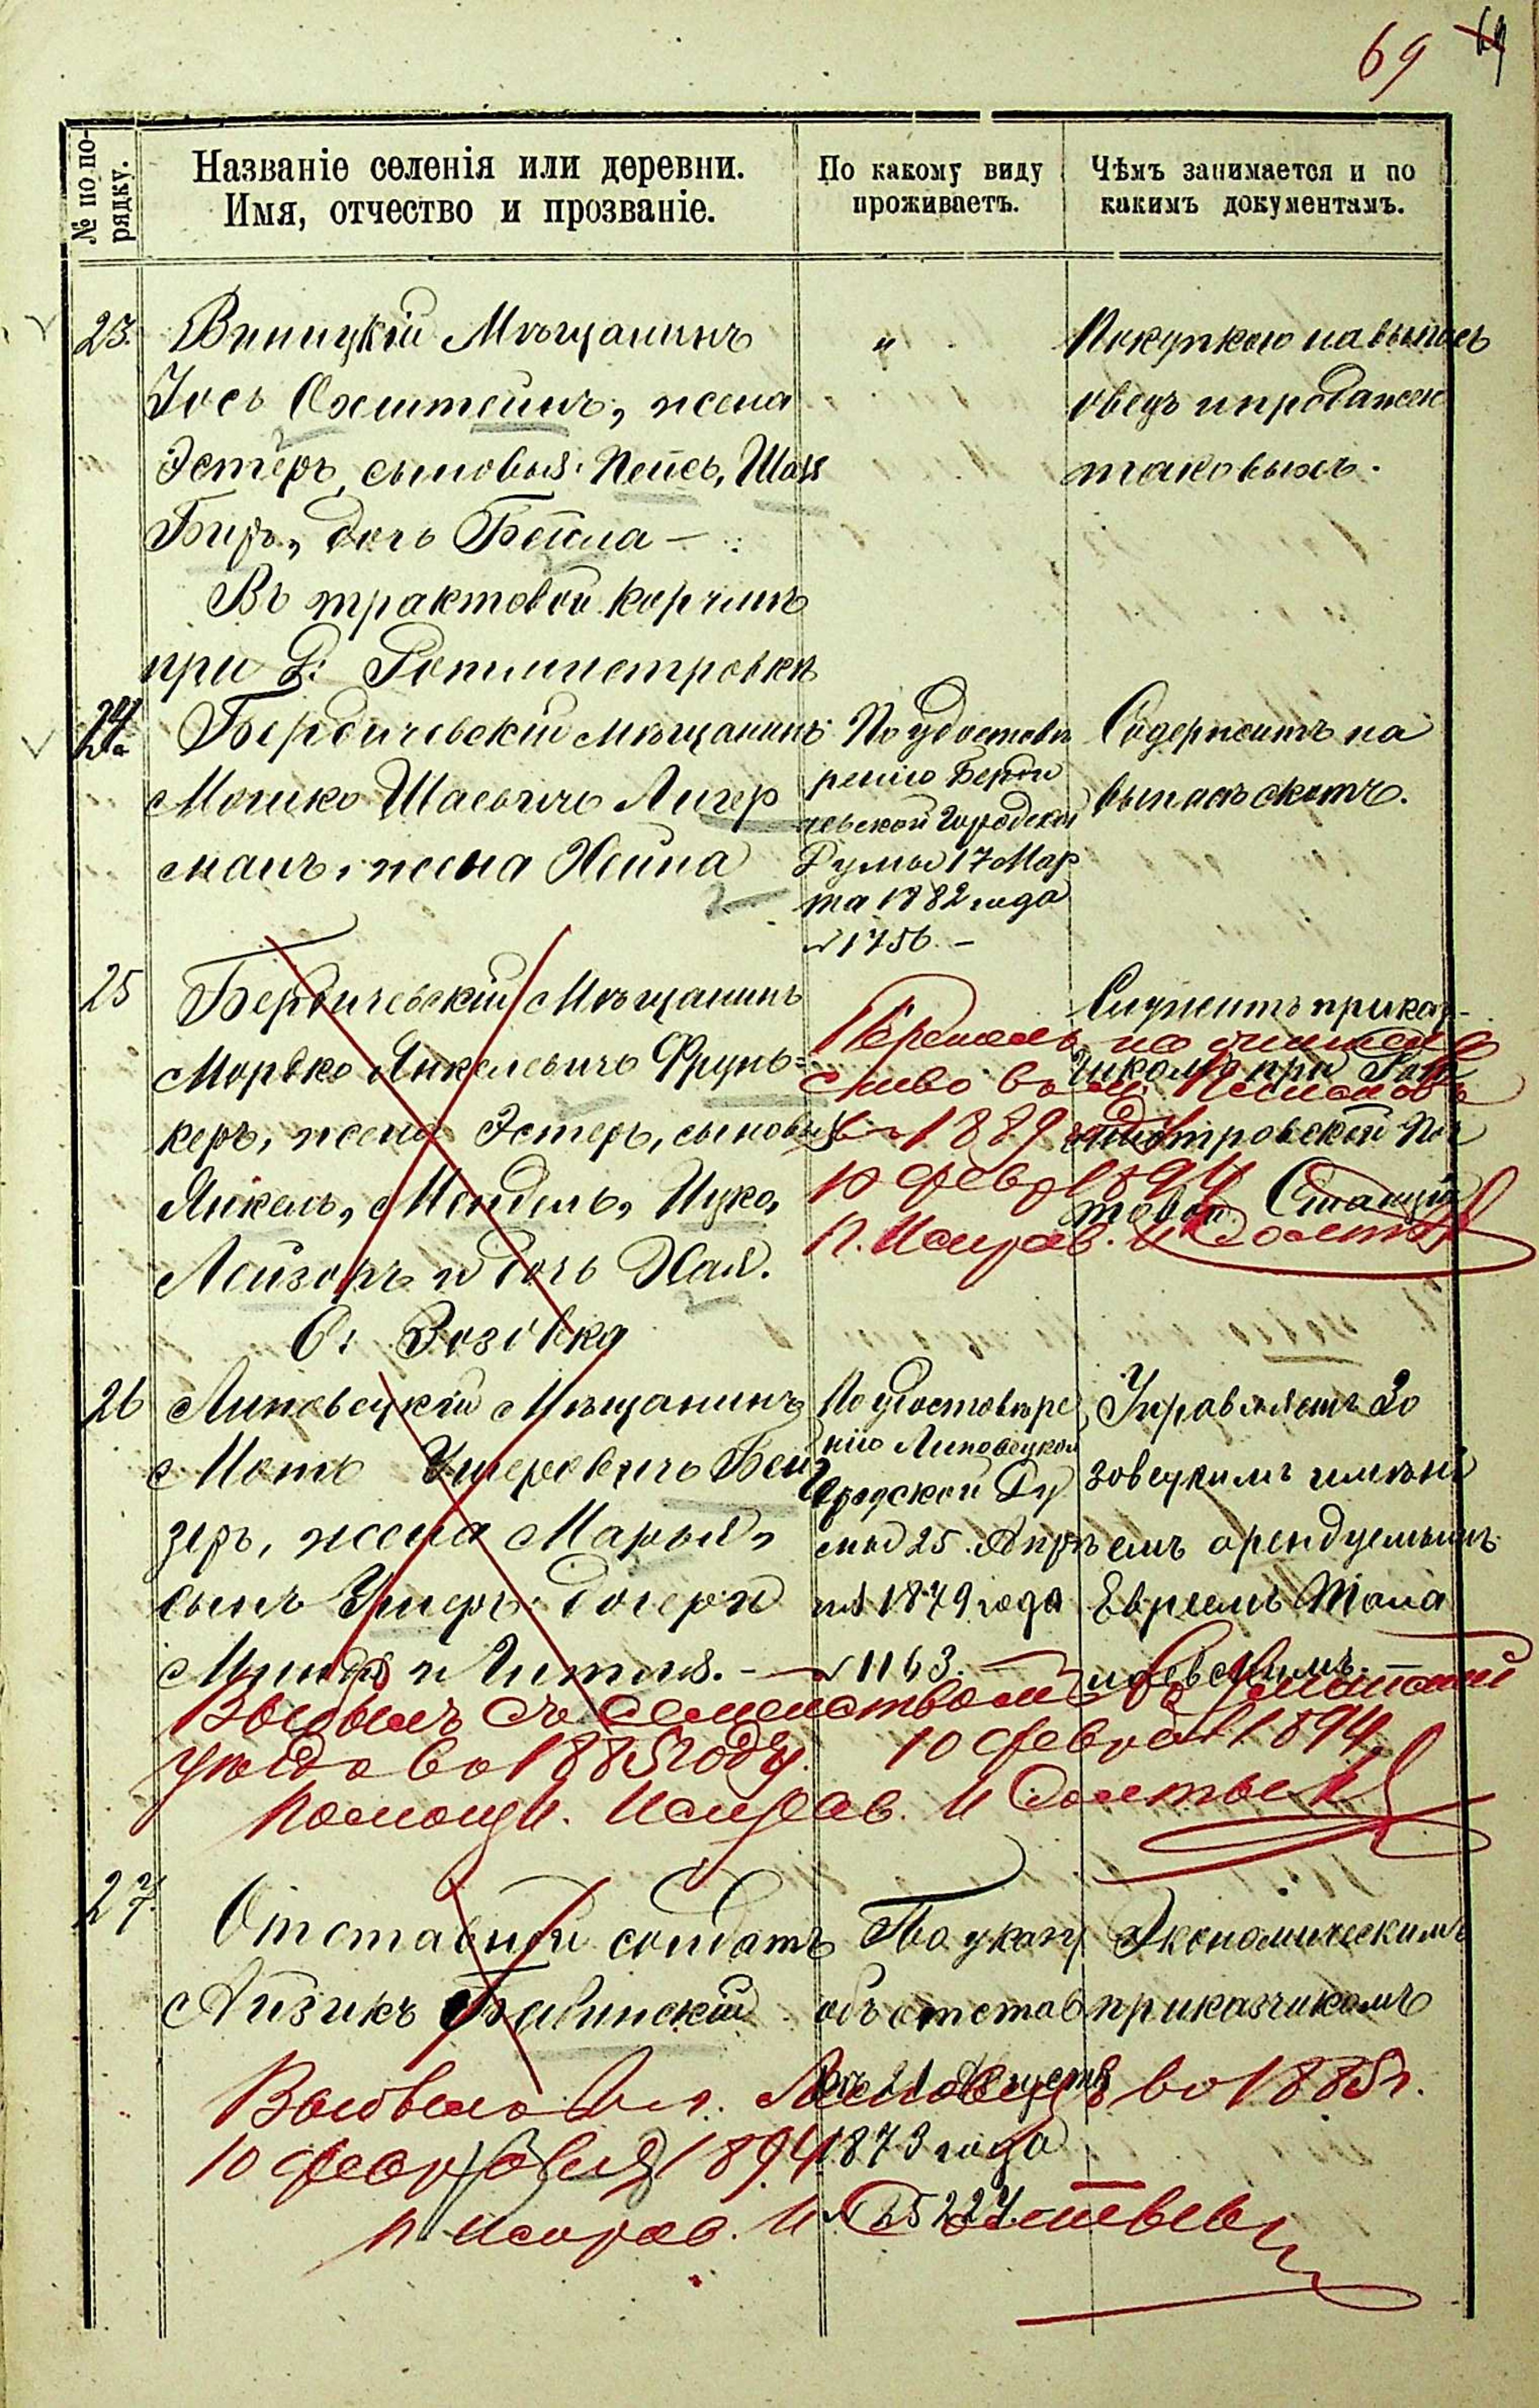 69 69
№ по по-
рядку.
Названіе селенія или деревни.
Имя, отчество и прозваніе.
По какому виду
проживаетъ.
Чѣмъ занимается и по
какимъ документамъ.
23. Виницкій Мѣщанинъ
Іось Охштейнъ, жена
Эстеръ, сыновья: Пейсь, Шая
Биръ, дочь Бейла —
"
Покупкою на выпасъ
овецъ и продажею
таковыхъ.
Въ трактовой корчмѣ
при д: Ротмистровкѣ
24. Бердичевскій мѣщанинъ
Мошко Шаевичъ Лигер
манъ, жена Хейна
По удостовѣ
ренію Берди
чевской Городской
Думы 17 Мар
та 1882 года
№ 1756. —
Содержитъ на
выпасъ скотъ.
25 Бердичевскій Мѣщанинъ
Мордко Янкелевичъ Фрунь=
керъ, жена Эстеръ, сыновья
Янкель, Мендель, Ицко,
Лейзоръ и дочь Хая.
Служитъ приказ-
чикомъ при Рот
мистровской Поч
товой Станціи
въ 1889 году
10 февр 1894
П. Исправ. И
С: Возовка
26 Липовецкій Мѣщанинъ
Мотъ Ушеровичъ Бен
зеръ, жена Марья,
сынъ Ушеръ, дочери
Миндя и Гитля. —
По удостовѣре
нію Липовецкой
Городской Ду
мы 25 Апрѣ
ля 1879 года
№ 1163. —
Управляетъ Во
зовецкимъ имѣні
емъ арендуемымъ
Евреемъ
Выбылъ съ семействомъ въ
уѣздъ въ 1885 году. 10 февраля 1894
Помощн. Исправ. И
27. Отставной солдатъ
Айзикъ Бабинскій
По указу
объ отстав
кѣ 21 Августа
1873 года
№ 25227.
Экономическимъ
приказчикомъ
Выбылъ въ г. Липовецъ въ 1885 г.
10 февраля 1894
П. Исправ. И